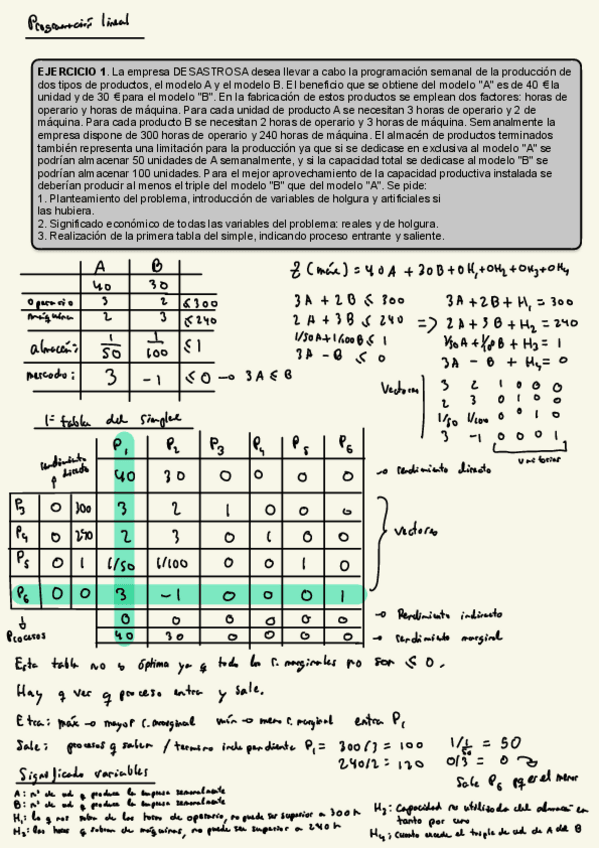 Programación lineal
EJERCICIO 1. La empresa DESASTROSA desea llevar a cabo la programación semanal de la producción de
dos tipos de productos, el modelo A y el modelo B. El beneficio que se obtiene del modelo "A" es de 40 € la
unidad y de 30 € para el modelo "B". En la fabricación de estos productos se emplean dos factores: horas de
operario y horas de máquina. Para cada unidad de producto A se necesitan 3 horas de operario y 2 de
máquina. Para cada producto B se necesitan 2 horas de operario y 3 horas de máquina. Semanalmente la
empresa dispone de 300 horas de operario y 240 horas de máquina. El almacén de productos terminados
también representa una limitación para la producción ya que si se dedicase en exclusiva al modelo "A" se
podrían almacenar 50 unidades de A semanalmente, y si la capacidad total se dedicase al modelo "B" se
podrían almacenar 100 unidades. Para el mejor aprovechamiento de la capacidad productiva instalada se
deberían producir al menos el triple del modelo "B" que del modelo "A". Se pide:
1. Planteamiento del problema, introducción de variables de holgura y artificiales si
las hubiera.
2. Significado económico de todas las variables del problema: reales y de holgura.
3. Realización de la primera tabla del simple, indicando proceso entrante y saliente.
A B
40 30
operario 3 2 ≤300
máquina 2 3 ≤240
almacén: 1/50 1/100 ≤1
mercado: 3 -1 ≤0 → 3A ≤ B
Z (máx) = 40A + 30B + 0H₁ + 0H₂ + 0H₃ + 0H₄
3A + 2B ≤ 300 3A + 2B + H₁ = 300
2A + 3B ≤ 240 => 2A + 3B + H₂ = 240
1/50A + 1/100B ≤ 1 1/50A + 1/100B + H₃ = 1
3A - B ≤ 0 3A - B + H₄ = 0
Vectores
3 2 1 0 0 0
2 3 0 1 0 0
1/50 1/100 0 0 1 0
3 -1 0 0 0 1
unitarios
1ª tabla del simplex
P₁ P₂ P₃ P₄ P₅ P₆
rendimiento directo
40 30 0 0 0 0 → rendimiento directo
P₃ 0 300 3 2 1 0 0 0
P₄ 0 240 2 3 0 1 0 0
P₅ 0 1 1/50 1/100 0 0 1 0
P₆ 0 0 3 -1 0 0 0 1
vectores
0 0 0 0 0 0 → Rendimiento indirecto
Procesos 40 30 0 0 0 0 → rendimiento marginal
Esta tabla no es óptima ya q todo los r. marginales no son ≤ 0.
Hay q ver q proceso entra y sale.
Etra: máx → mayor r. marginal mín → menor r. marginal entra P₁
Sale: procesos q salen / termino independiente P₁ = 300/3 = 100 1/1/50 = 50
240/2 = 120 0/3 = 0
Sale P₆ pq es el menor
Significado variables
A: nº de ud q produce la empresa semanalmente
B: nº de ud q produce la empresa semanalmente
H₁: lo q nos sobra de las horas de operario, no puede ser superior a 300 h
H₂: las horas q sobran de máquinas, no puede ser superior a 240 h
H₃: Capacidad no utilizada del almacén en
tanto por uno
H₄: Cuanto excede el triple de ud de A del B